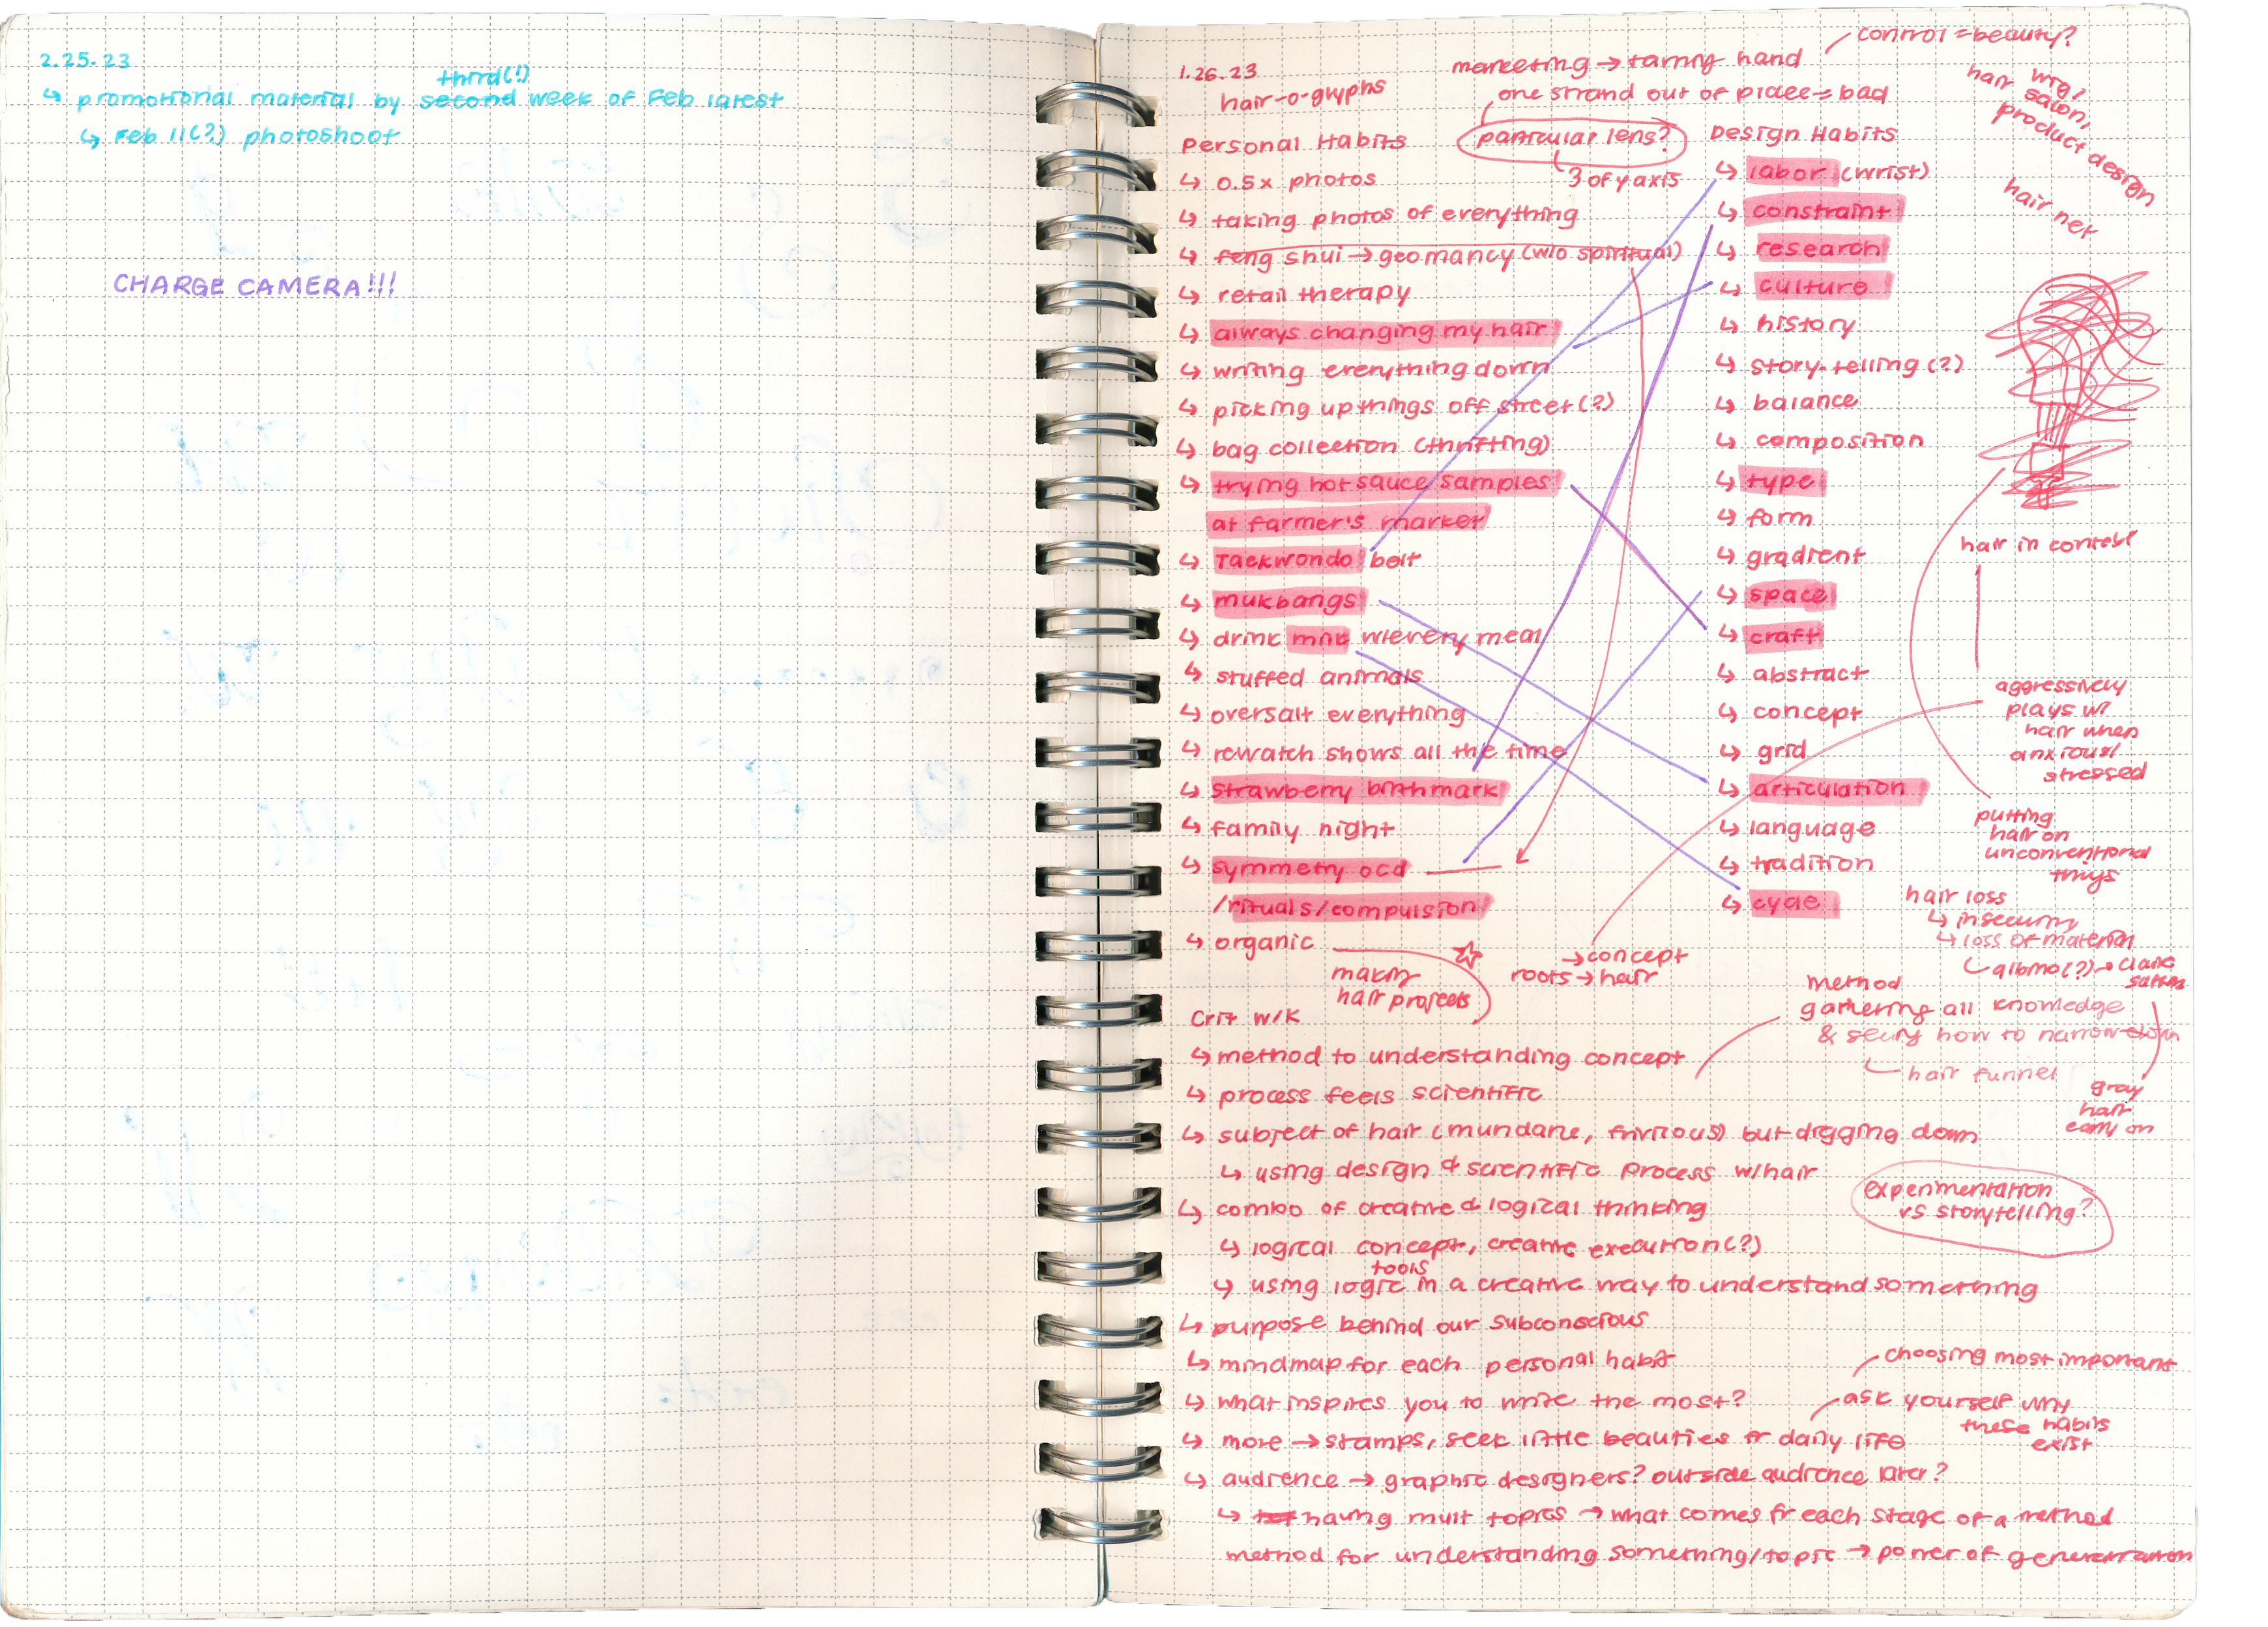 2.25.23
third(!)
↳ promotional material by second week of Feb latest
↳ Feb 11(?) photoshoot
CHARGE CAMERA!!!
1.26.23
hair-o-glyphs
marketing → taming hand
control = beauty?
one strand out of place = bad
particular lens?
3 of y axis
wig,
hair salon,
product design
hair net
Personal Habits
↳ 0.5x photos
↳ taking photos of everything
↳ feng shui → geomancy (w/o spiritual)
↳ retail therapy
↳ always changing my hair
↳ writing everything down
↳ picking up things off street (?)
↳ bag collection (thrifting)
↳ trying hot sauce samples
at farmer's market
↳ Taekwondo belt
↳ mukbangs
↳ drink milk w/every meal
↳ stuffed animals
↳ oversalt everything
↳ rewatch shows all the time
↳ strawberry birthmark
↳ family night
↳ symmetry ocd
/rituals/compulsion
↳ organic
making
hair projects
Design Habits
↳ labor (wrist)
↳ constraint
↳ research
↳ culture
↳ history
↳ story-telling (?)
↳ balance
↳ composition
↳ type
↳ form
↳ gradient
↳ space
↳ craft
↳ abstract
↳ concept
↳ grid
↳ articulation
↳ language
↳ tradition
↳ cycle
hair in context
aggressively
plays w/
hair when
anxious/
stressed
putting
hair on
unconventional
things
hair loss
↳ insecurity
↳ loss of material
albino(?) →
gray
hair
early on
→ concept
roots → hair
method
gathering all knowledge
& seeing how to narrow down
hair funnel
Crit w/K
↳ method to understanding concept
↳ process feels scientific
↳ subject of hair (mundane, frivilous) but digging down
↳ using design & scientific process w/hair
experimentation
vs storytelling?
↳ combo of creative & logical thinking
↳ logical concept, creative execution(?)
tools
↳ using logic in a creative way to understand something
↳ purpose behind our subconscious
↳ mindmap for each personal habit
choosing most important
↳ what inspires you to write the most?
ask yourself why
these habits
exist
↳ more → stamps, seek little beauties fr daily life
↳ audience → graphic designers? outside audience later?
↳ having mult topics → what comes fr each stage of a method
method for understanding something/topic → power of generation